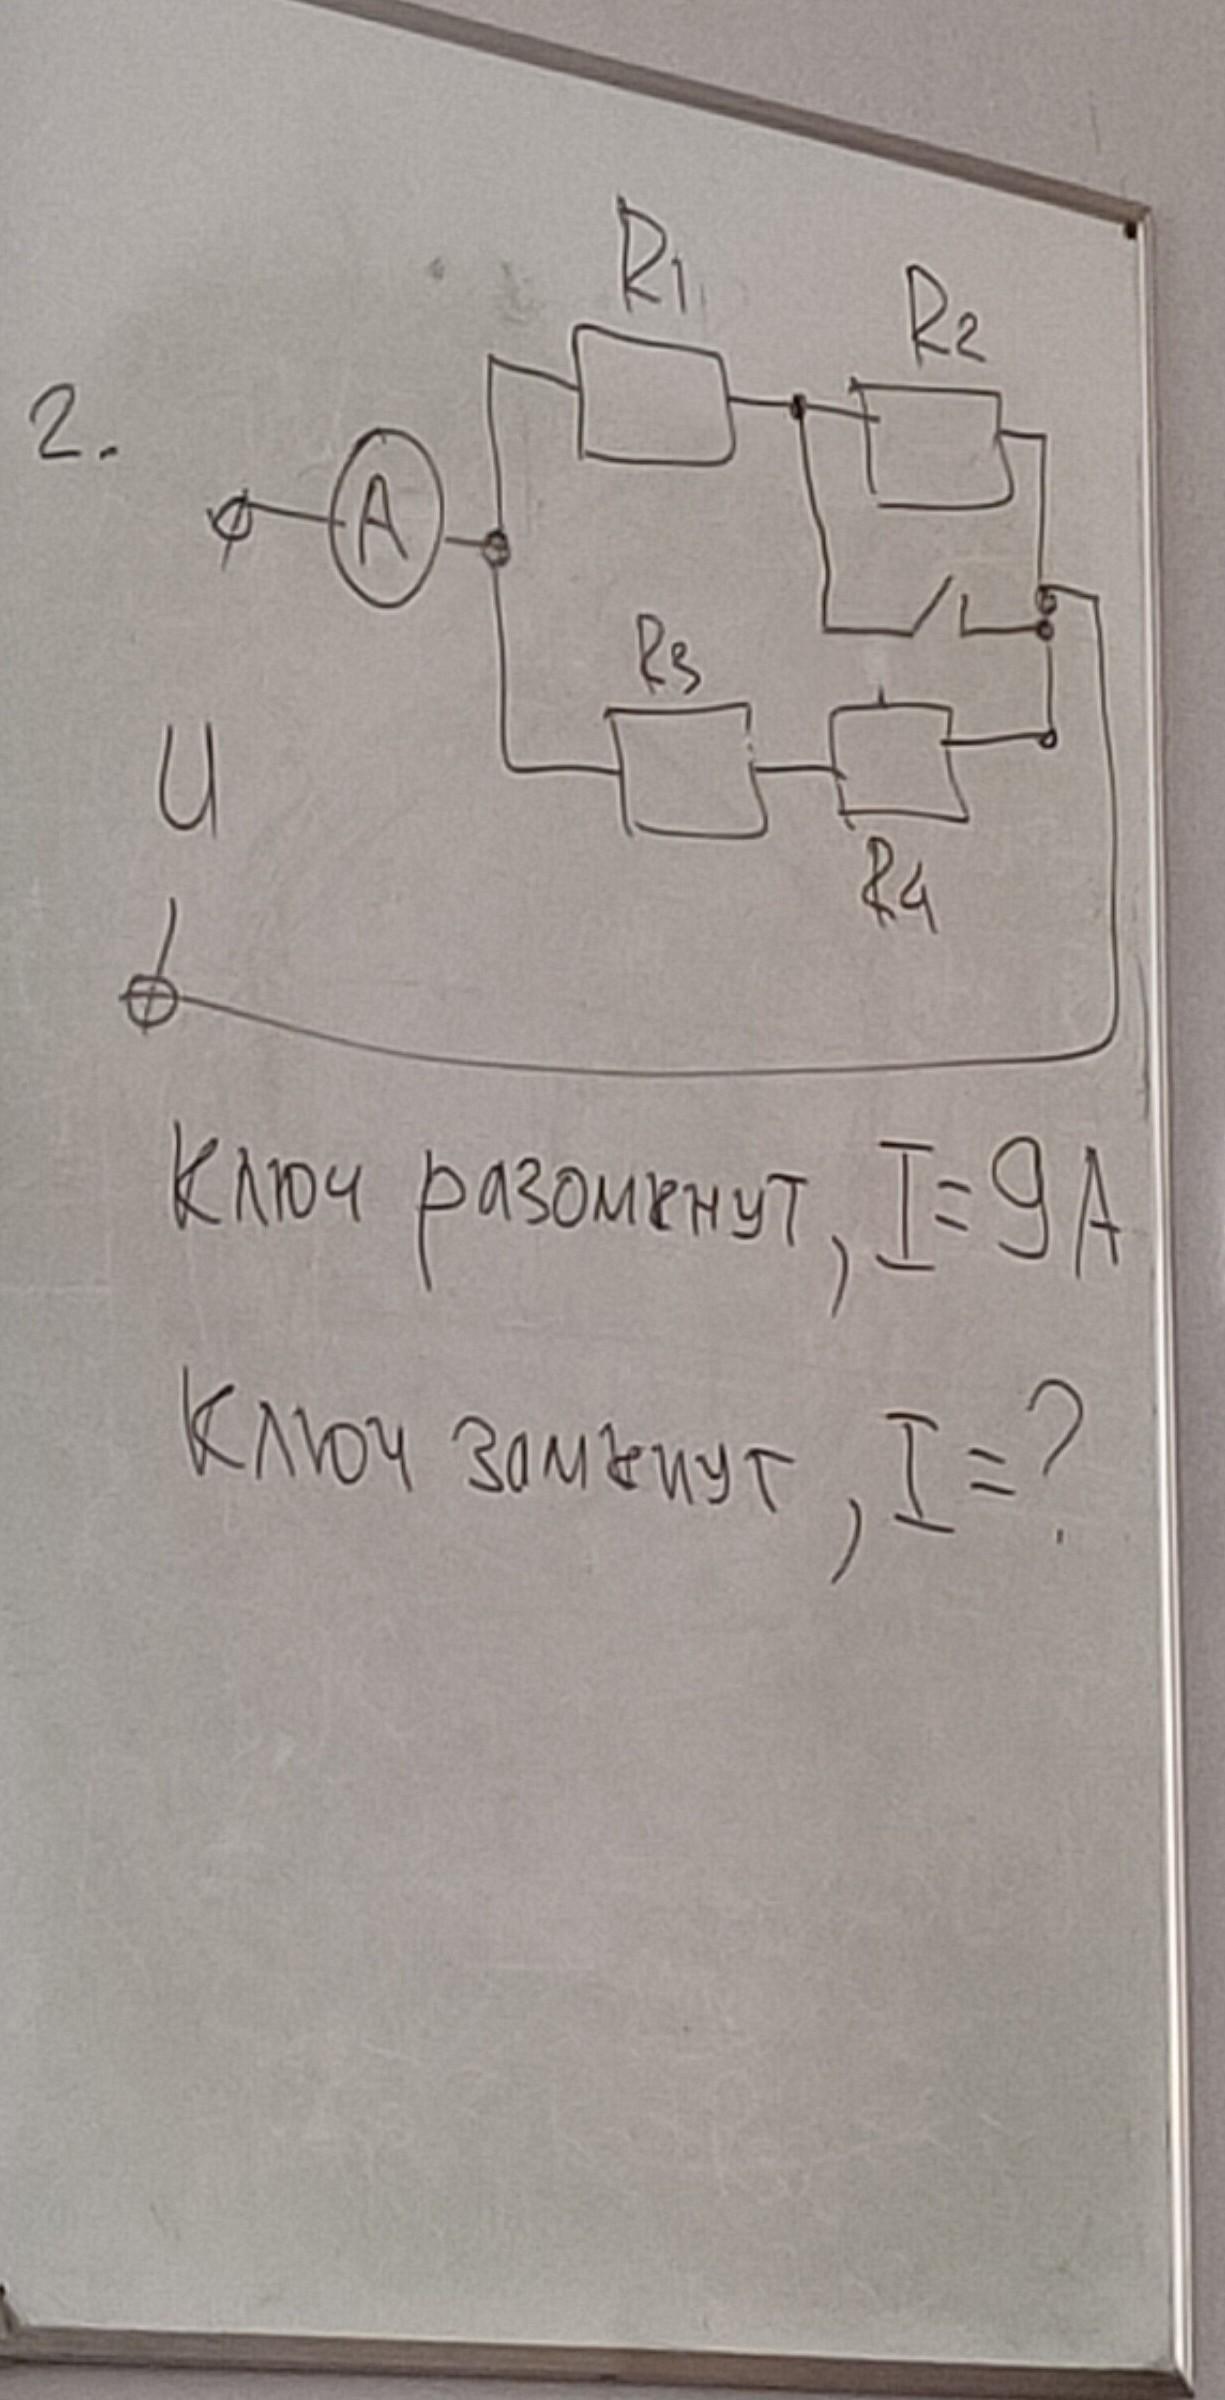 2.
R1
R2
A
R3
U
R4
Ключ разомкнут, I=9A
Ключ замкнут, I=?